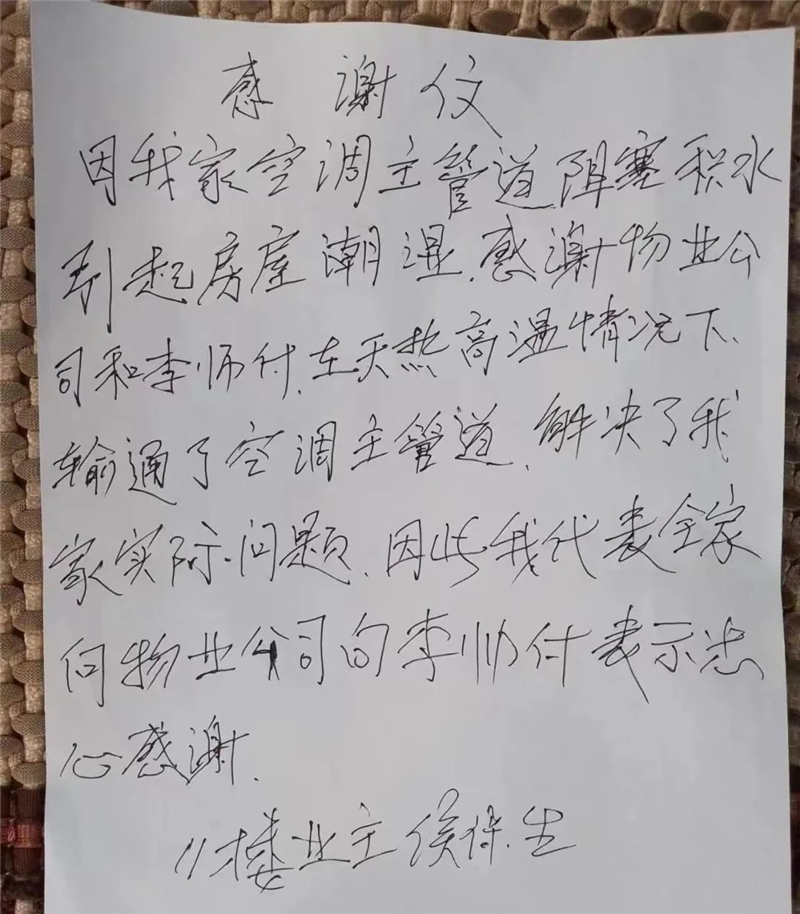 感谢信
因我家空调主管道阻塞积水
引起房屋潮湿.感谢物业公
司和李师付.在天热高温情况下、
输通了空调主管道、解决了我
家实际问题、因此我代表全家
向物业公司向李师付表示忠
心感谢.
11楼业主侯保生